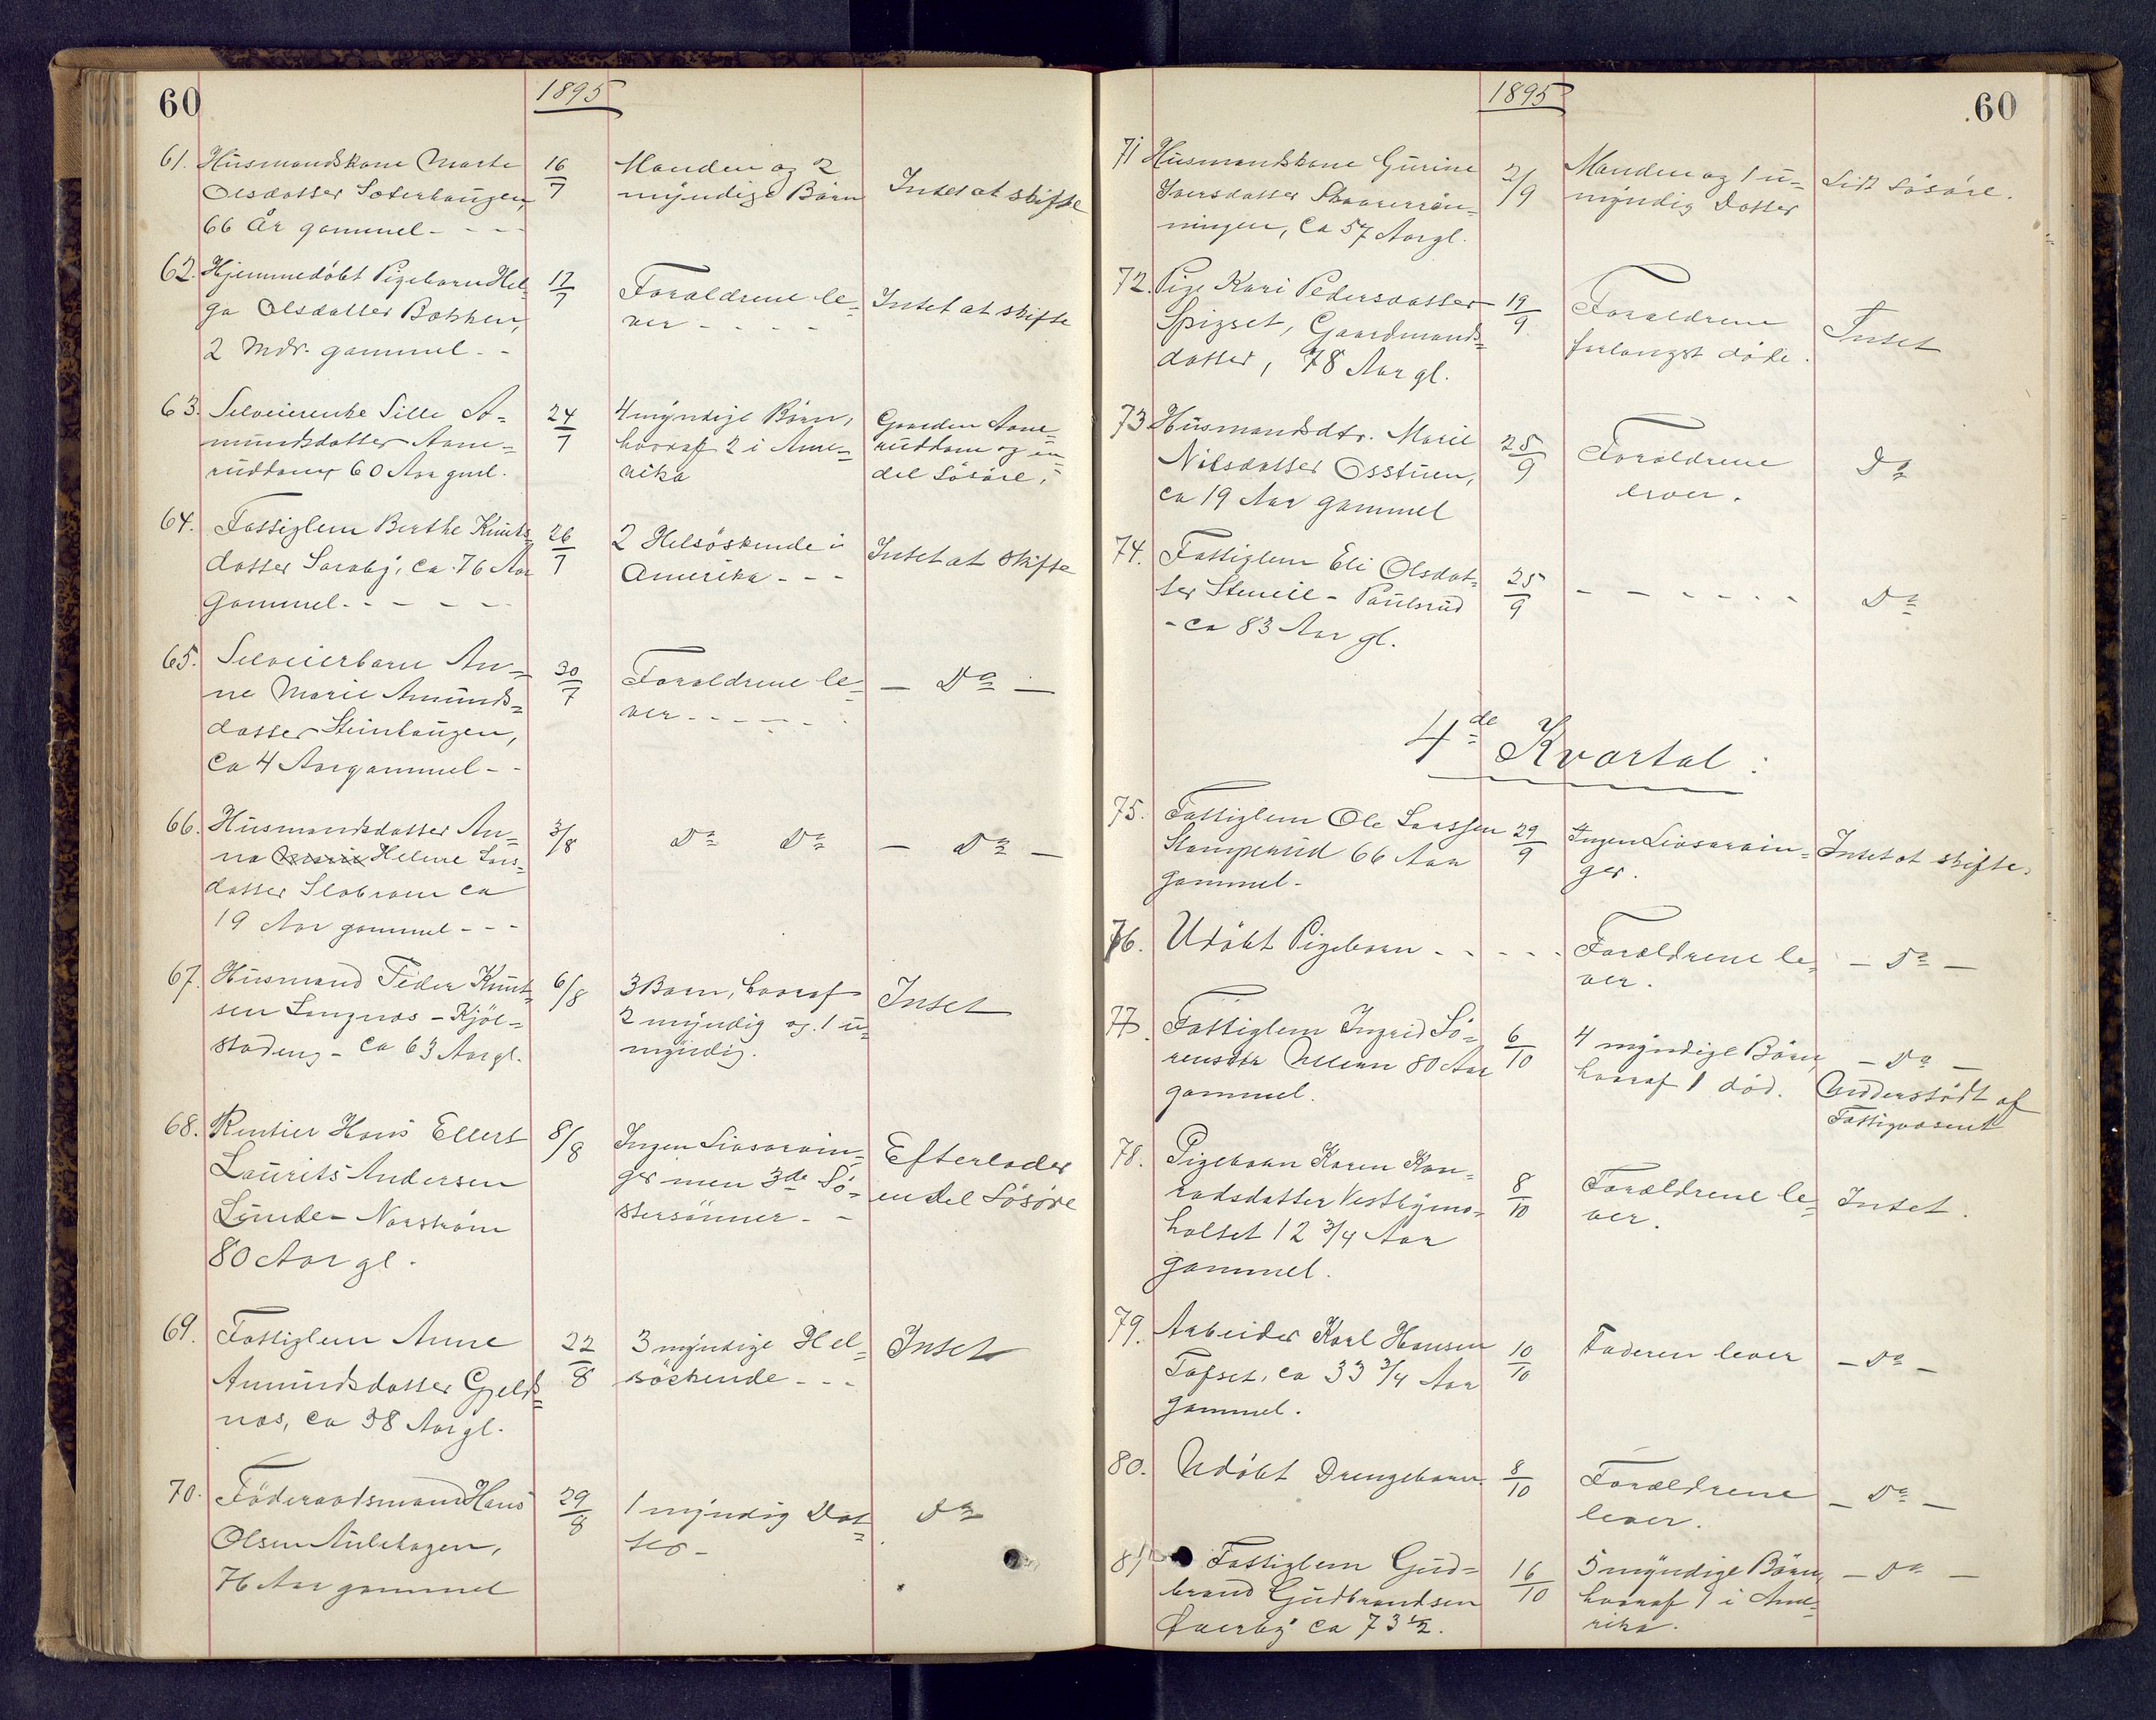 60
1895
61. Husmandskone Marte
Olsdatter Sæterhaugen,
66 År gammel - - -
16/7
Manden og 2
myndige Børn
Intet at skifte
62. Hjemmedöbt Pigebarn Hel-
ga Olsdatter Bakken,
2 Mdr. gammel - -
17/7
Forældrene le-
ver - - - -
Intet at skifte
63. Selveierenke Sille A-
mundsdatter Aame-
ruddam, 60 Aar gml.
24/7
4 myndige Börn,
hvoraf 2 i Ame-
rika
Gaarden Aame-
ruddam og en
del Lösöre.
64. Fattiglem Berthe Knuts-
datter Saraby, ca. 76 Aar
gammel - - - - -
26/7
2 Helsöskende i
Amerika - - -
Intet at skifte
65. Selveierbarn An-
ne Marie Amunds-
datter Steinhaugen,
ca 4 Aar gammel - -
30/7
Forældrene le-
ver - - - - -
- Do -
66. Husmandsdatter An-
na Helene Lars-
datter ca
19 Aar gammel - - -
3/8
Do Do
- Do -
67. Husmand Peder Knut-
sen Langnæs - Kjöl-
staden, - ca 63 Aar gl.
6/8
3 Barn, hvoraf
2 myndig og 1 u-
myndig.
Intet
68. Rentier Hans Ellert
Laurits Andersen
Linde - Narström
80 Aar gl.
8/8
Ingen Livsarvin-
ger men 3de Sö-
stersönner - -
Efterlader
en del Lösöre
69. Fattiglem Anne
Amundsdatter Gjelds-
næs, ca 38 Aar gl.
22/8
3 myndige Hel-
söskende - - -
Intet
70. Föderaadsmand Hans
Olsen Aulihagen,
76 Aar gammel
29/8
1 myndig Dat-
ter -
Do
1895
60
71 Husmandskone Gurine
Iversdatter
ningen, ca 57 Aar gl.
2/9
Manden og 1 u-
myndig Datter
Lidt Lösöre.
72. Pige Kari Pedersdatter
Spigset, Gaardmands-
datter, 78 Aar gl.
19/9
Forældrene
forlængst döde.
Intet
73 Husmandsdtr. Marie
Nilsdatter Osstuen,
ca 19 Aar gammel
25/9
Forældrene
lever.
Do
74. Fattiglem Eli Olsdat-
ter - Paulsrud
- ca 83 Aar gl.
25/9
- - - - - -
Do
4de Kvartal:
75. Fattiglem Ole Larssen
Stamperud 66 Aar
gammel -
29/9
Ingen Livsarvin-
ger.
Intet at skifte.
76. Udöbt Pigebarn - - - - -
Forældrene le-
ver.
- Do -
77. Fattiglem Ingrid Sö-
rensdtr 80 Aar
gammel.
6/10
4 myndige Börn,
hvoraf 1 död.
- Do -
Understödt af
Fattigvæsenet
78. Pigebarn Karen Kon-
radsdatter Vestbymo-
holtet 12 3/4 Aar
gammel.
8/10
Forældrene le-
ver.
Intet.
79. Arbeider Karl Hansen
Tofset, ca 33 3/4 Aar
gammel.
10/10
Faderen lever
- Do -
80. Udöbt Drengebarn
8/10
Forældrene
lever.
- Do -
81 Fattiglem Gud-
brand Gudbrandsen
Øverby ca 73 1/2.
16/10
5 myndige Börn,
hvoraf 1 i Ame-
rika.
- Do -